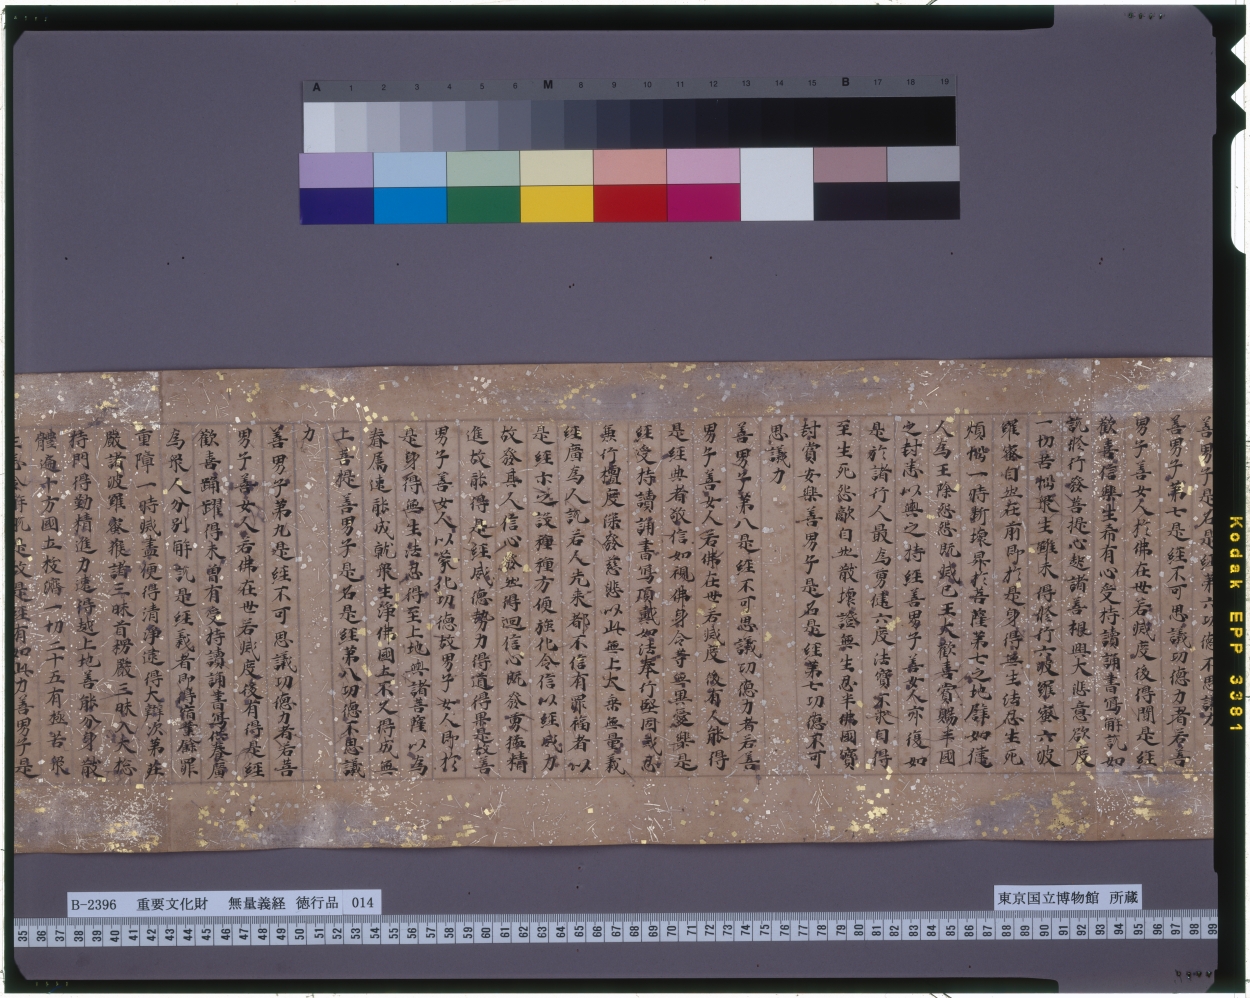 善男子是名是經第六功德不思議力
善男子第七是經不可思議功德力者若善
男子善女人於佛在世若滅度後得聞是經
歡喜信樂生希有心受持讀誦書寫解說如
說修行發菩提心起諸善根興大悲意欲度
一切苦惱衆生雖未得修行六波羅蜜六波
羅蜜自然在前即於是身得無生法忍生死
煩惱一時斷壞昇於菩薩第七之地譬如健
人為王除怨怨既滅已王大歡喜賞賜半國
之封悉以與之持經善男子善女人亦復如
是於諸行人最為勇健六度法寶不求自得
至生死怨敵自然散壞證無生忍半佛國寶
封賞安樂善男子是名是經第七功德不可
思議力
善男子第八是經不可思議功德力者若善
男子善女人若佛在世若滅度後有人能得
是經典者敬信如視佛身令等無異愛樂是
經受持讀誦書寫頂戴如法奉行堅固戒忍
兼行檀度深發慈悲以此無上大乘無量義
經廣為人說若人先來都不信有罪福者以
是經示之設種種方便強化令信以經威力
故發其人信心欻然得迴信心既發勇猛精
進故能得是經威德勢力得道得果是故善
男子善女人以蒙化功德故男子女人即於
是身得無生法忍得至上地與諸菩薩以為
眷属速能成就衆生淨佛國土不久得成無
上菩提善男子是名是經第八功德不思議
力
善男子第九是經不可思議功德力者若善
男子善女人若佛在世若滅度後有得是經
歡喜踊躍得未曾有受持讀誦書寫供養廣
為衆人分別解說是經義者即時宿業餘罪
重障一時滅盡便得清淨逮得大辯次第莊
嚴諸波羅蜜獲諸三昧首楞嚴三昧入大總
持門得勤精進力速得越上地善能分身散
體遍十方國土拔濟一切二十五有極苦衆
生悉令解脫是故是經有如此力善男子是
B-2396 重要文化財 無量義経 徳行品 014
東京国立博物館 所蔵
Kodak EPP 3381
A 1 2 3 4 5 6 M 8 9 10 11 12 13 14 15 B 17 18 19
35 36 37 38 39 40 41 42 43 44 45 46 47 48 49 50 51 52 53 54 55 56 57 58 59 60 61 62 63 64 65 66 67 68 69 70 71 72 73 74 75 76 77 78 79 80 81 82 83 84 85 86 87 88 89 90 91 92 93 94 95 96 97 98 99